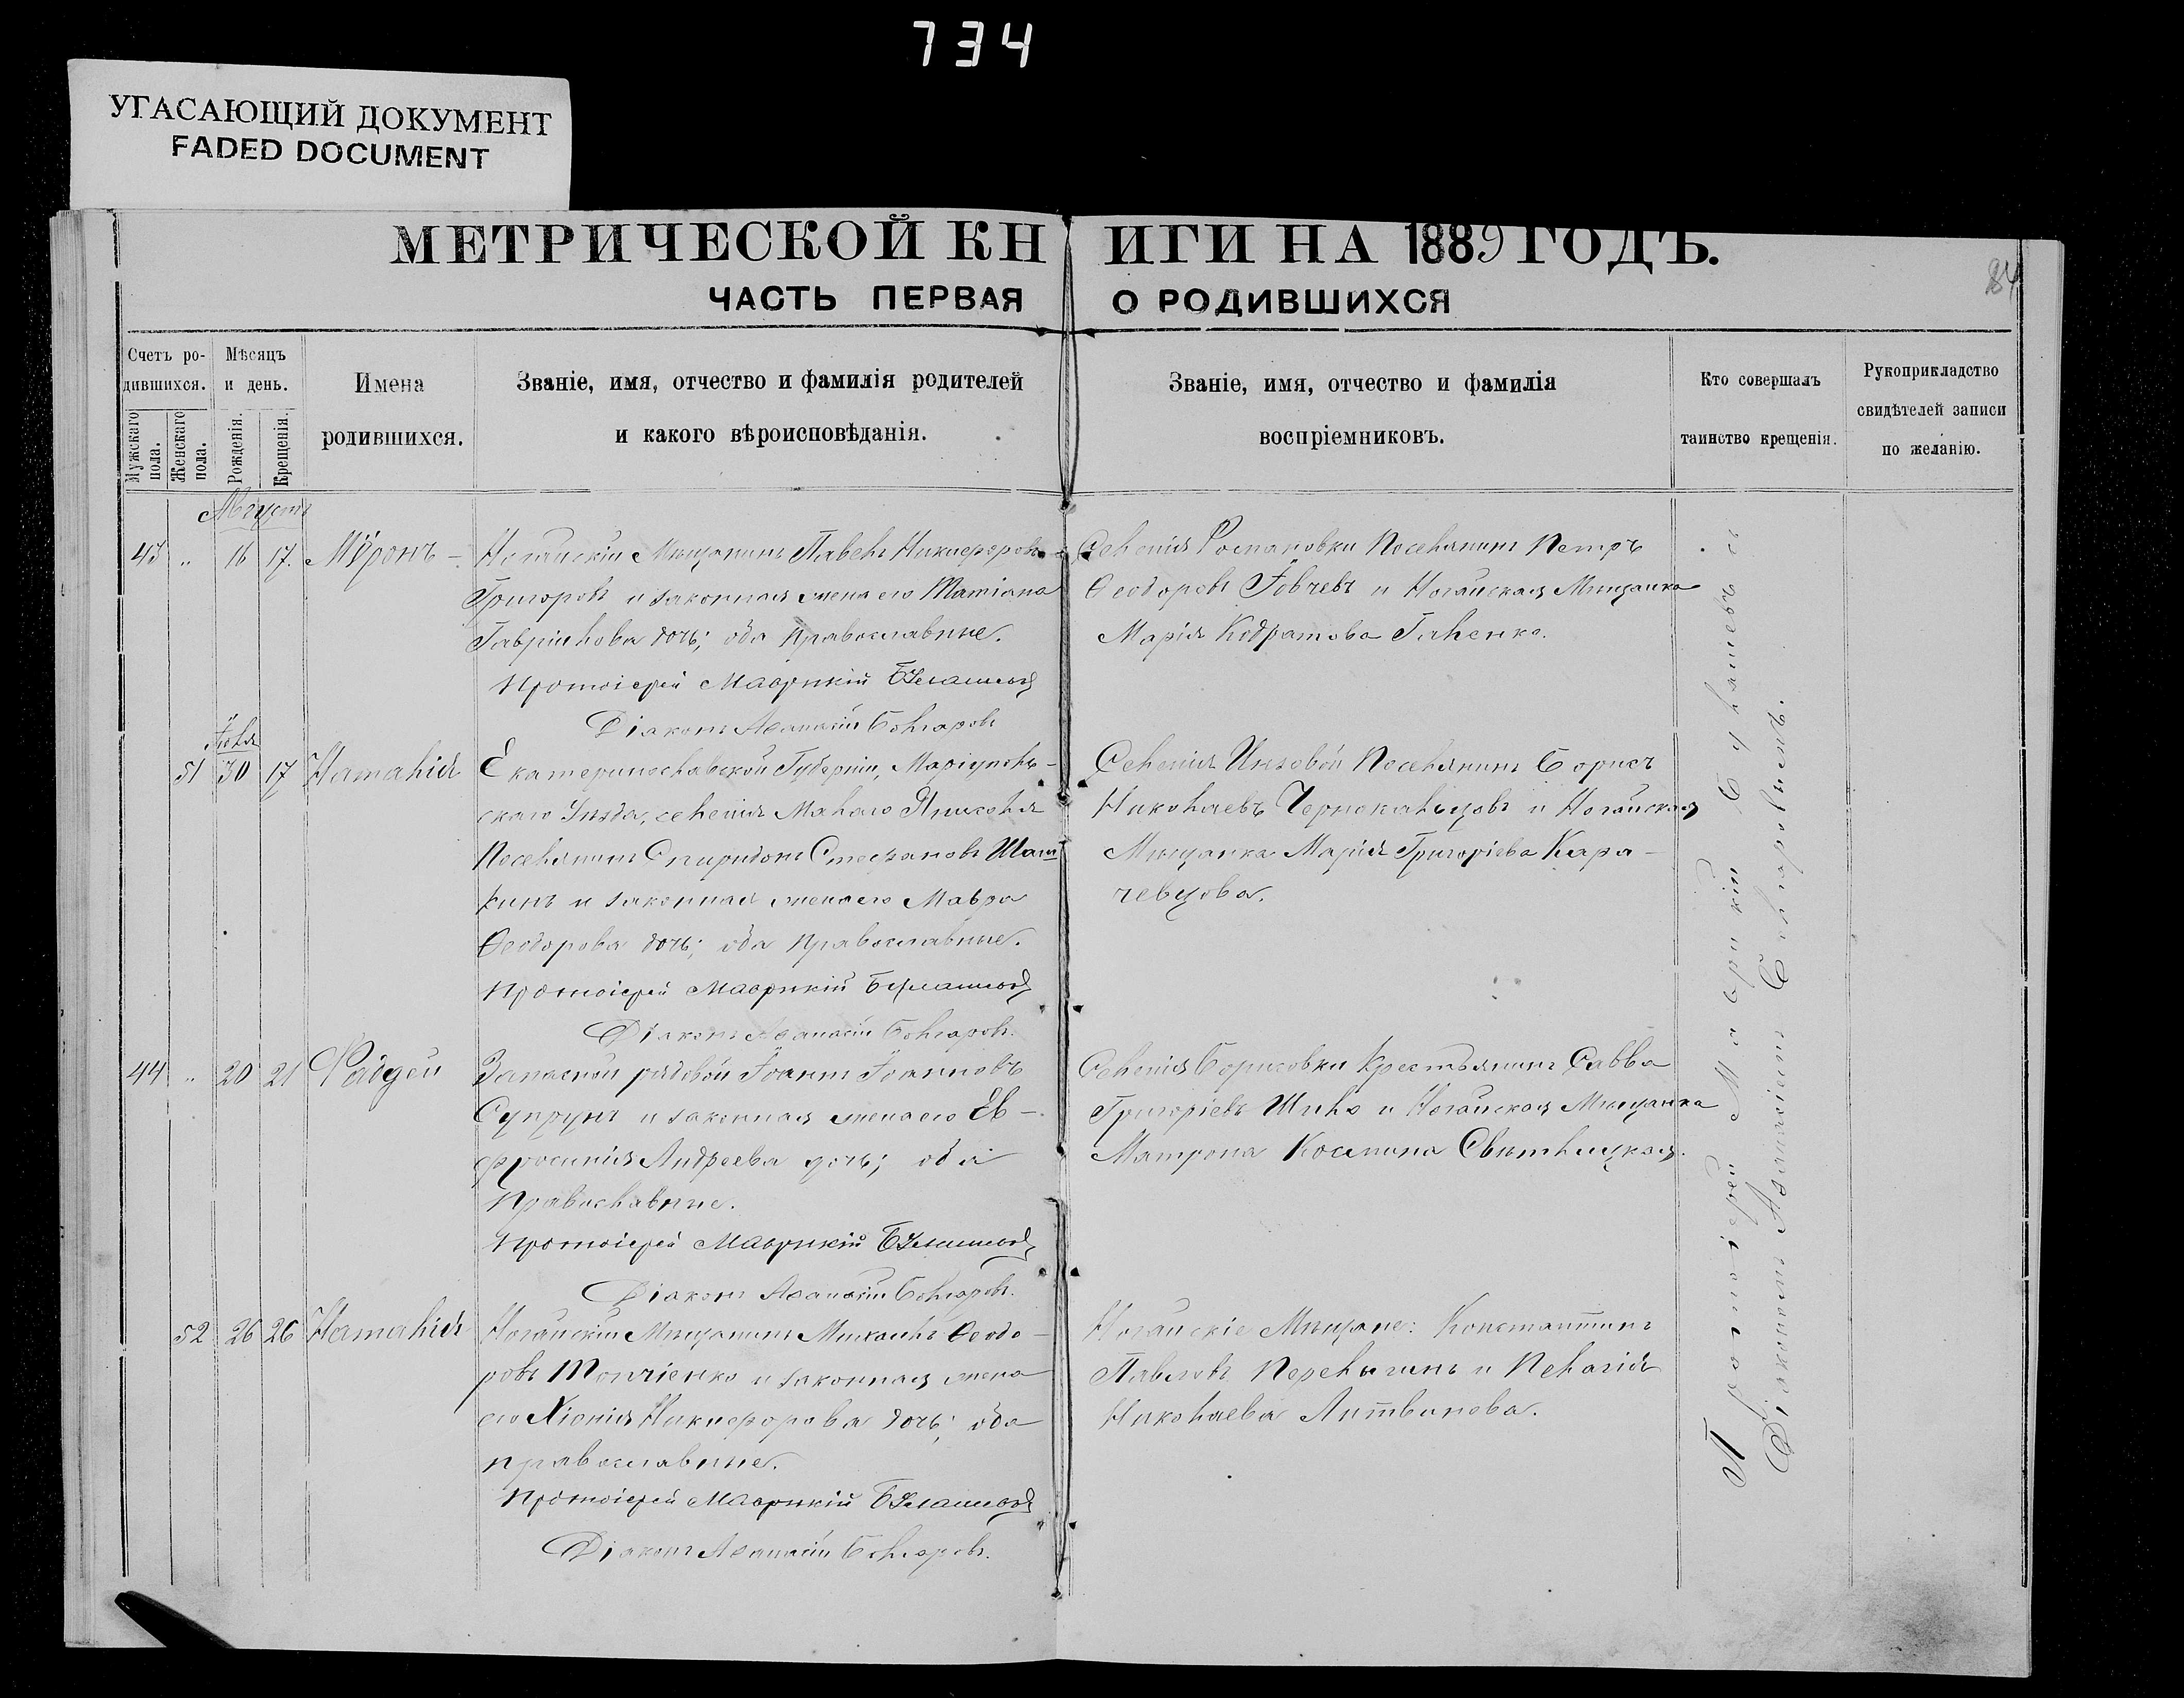 734
УГАСАЮЩИЙ ДОКУМЕНТ
FADED DOCUMENT
МЕТРИЧЕСКОЙ КНИГИ НА 1889 ГОДЪ.
84
ЧАСТЬ ПЕРВАЯ О РОДИВШИХСЯ
Счетъ ро-
дившихся.
Мужскаго пола.
Женскаго пола.
Мѣсяцъ
и день.
Рожденія.
Крещенія.
Имена
родившихся.
Званіе, имя, отчество и фамилія родителей
и какого вѣроисповѣданія.
Званіе, имя, отчество и фамилія
воспріемниковъ.
Кто совершалъ
таинство крещенія.
Рукоприкладство
свидѣтелей записи
по желанію.
Августъ
43 " 16 17. Мѵронъ -
Ногайскій Мѣщанинъ Павелъ Никифоровъ
Григоровъ и законная жена его Татіана
Гавріилова дочь; оба православные.
Протоіерей Маврикій
Діаконъ Аѳанасій Болгаровъ
Селенія Романовки Поселянинъ Петръ
Ѳеодоровъ Іовчевъ и Ногайская Мѣщанка
Марія Кодратова Галенко.
Іюля
51 30 17 Наталія
Екатеринославской Губерніи, Маріуполь-
скаго Уѣзда, селенія Малаго Янисоля
Поселянинъ Спиридонъ Стефановъ Шап
кинъ и законная жена его Мавра
Ѳеодорова дочь; оба православные.
Протоіерей Маврикій
Діаконъ Аѳанасій Болгаровъ.
Селенія Инзовой Поселянинъ Борисъ
Николаевъ Чернокальцовъ и Ногайская
Мѣщанка Марія Григоріева Кара-
чевцова.
44 " 20 21 Фаддей
Запасной рядовой Іоаннъ Іоанновъ
Супрунъ и законная жена его Ев-
фросинія Андреева дочь; оба
Православные.
Протоіерей Маврикій
Діаконъ Аѳанасій Болгаровъ.
Селенія Борисовки Крестьянинъ Савва
Григоріевъ Шило и Ногайская Мѣщанка
Матрона Космина Свѣтлицкая.
52 26 26 Наталія
Ногайскій Мѣщанинъ Михаилъ Ѳеодо-
ровъ Топчіенко и законная жена
его Хіонія Никифорова дочь; оба
православные.
Протоіерей Маврикій
Діаконъ Аѳанасій Болгаровъ.
Ногайскіе Мѣщане: Константинъ
Павловъ Перелыгинъ и Пелагія
Николаева Литвинова.
Протоіерей Маврикій съ
Діакономъ Аѳанасіемъ Болгаровымъ.